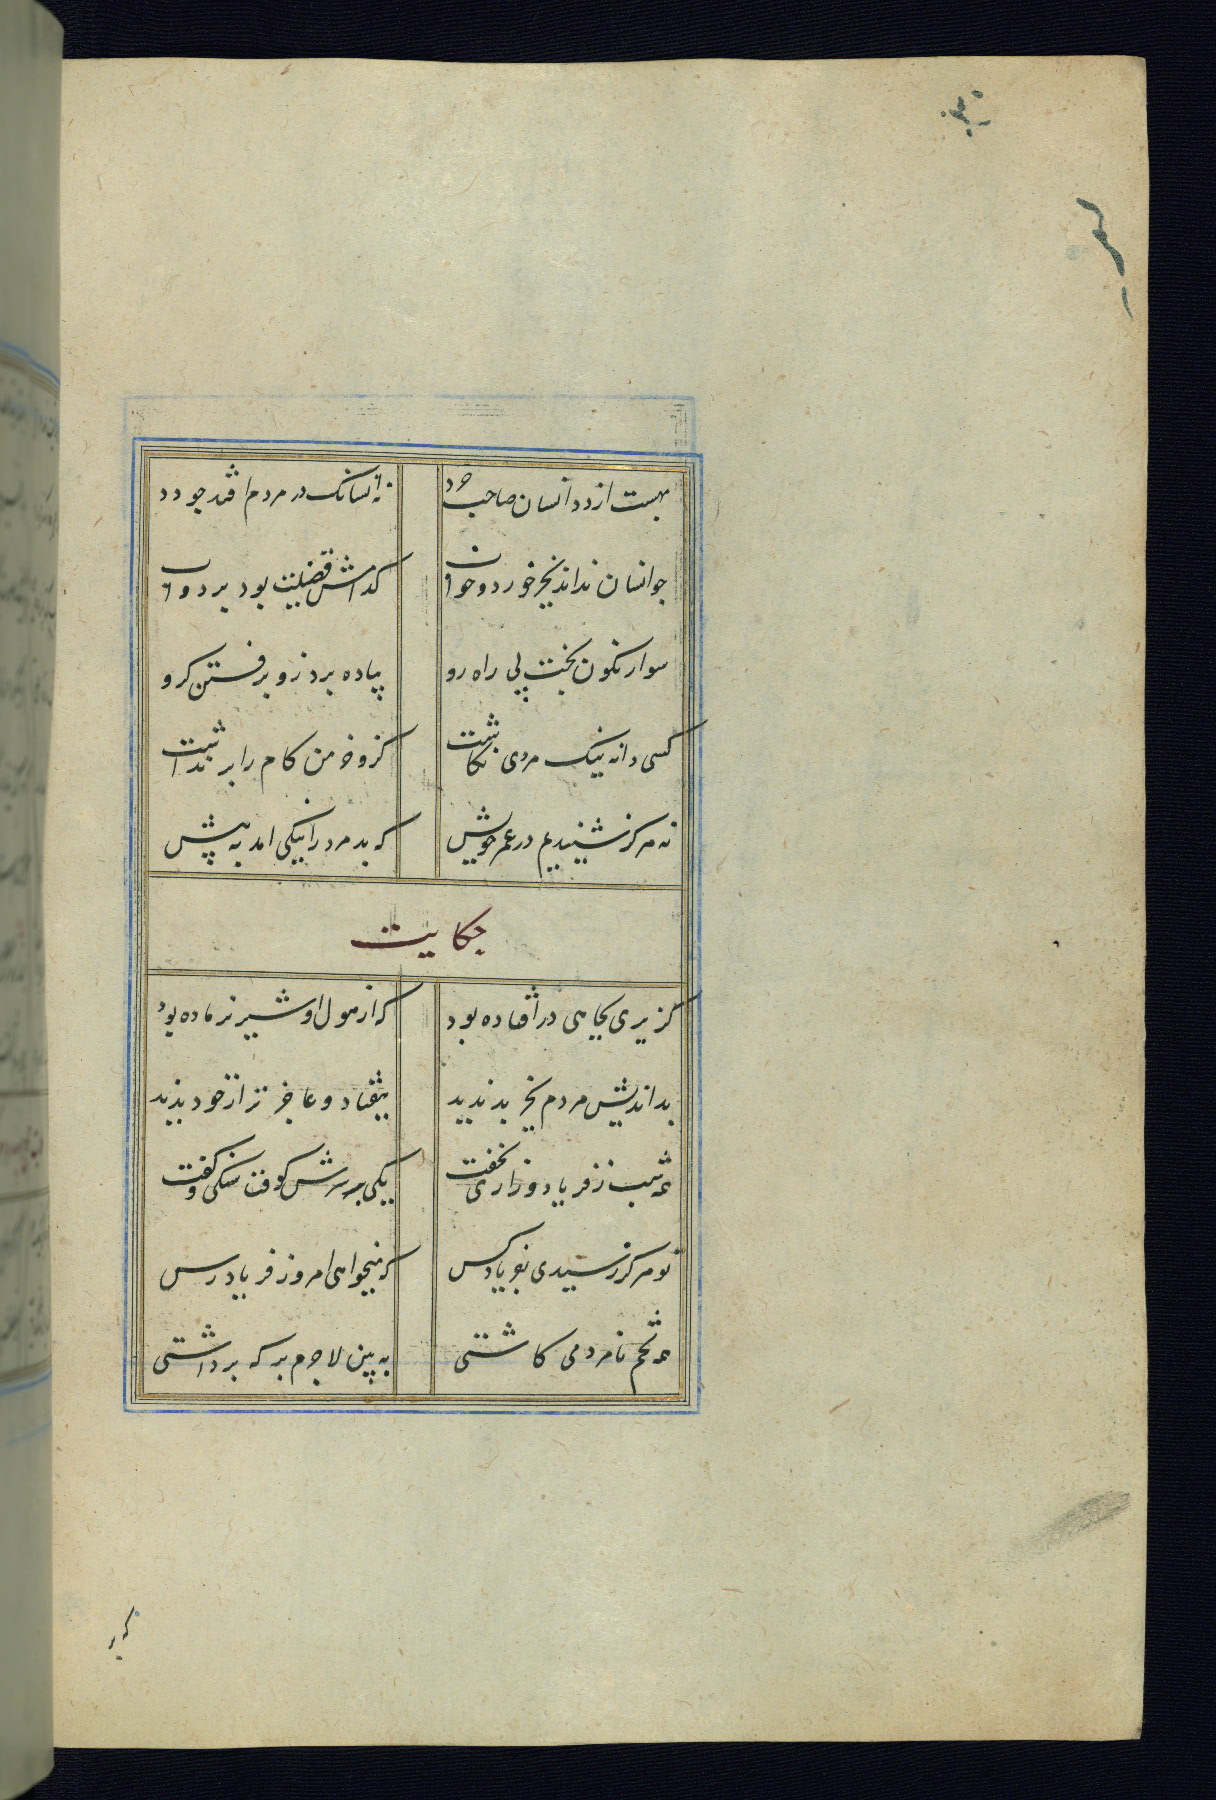 بهست از دد انسان صاحب خرد نه انسانک در مردم افتد چو دد
چو انسان نداند بجز خورد و خواب کدامش فضلیت بود بر دواب
سوار نکون بخت بی راه رو پیاده برد زو برفتن کرو
کسی دانه نیک مردی نکاشت کزو خرمن کام را بر نداشت
نه هرکز شنیدیم در عمر خویش که بد مرد را نیکی امد به پیش
حکایت
کزیری بچاهی در افتاده بود که از هول او شیر نر ماده بود
بداندیش مردم بجز بد ندید بیفتاد و عاجز تر از خود ندید
همه شب ز فریاد و زاری نخفت یکی بر سرش کوفت سنکی و کفت
تو هرکز رسیدی بفریاد کس که میخواهی امروز فریاد رس
همه تخم نامردمی کاشتی به بین لاجرم بر که برداشتی
که بر